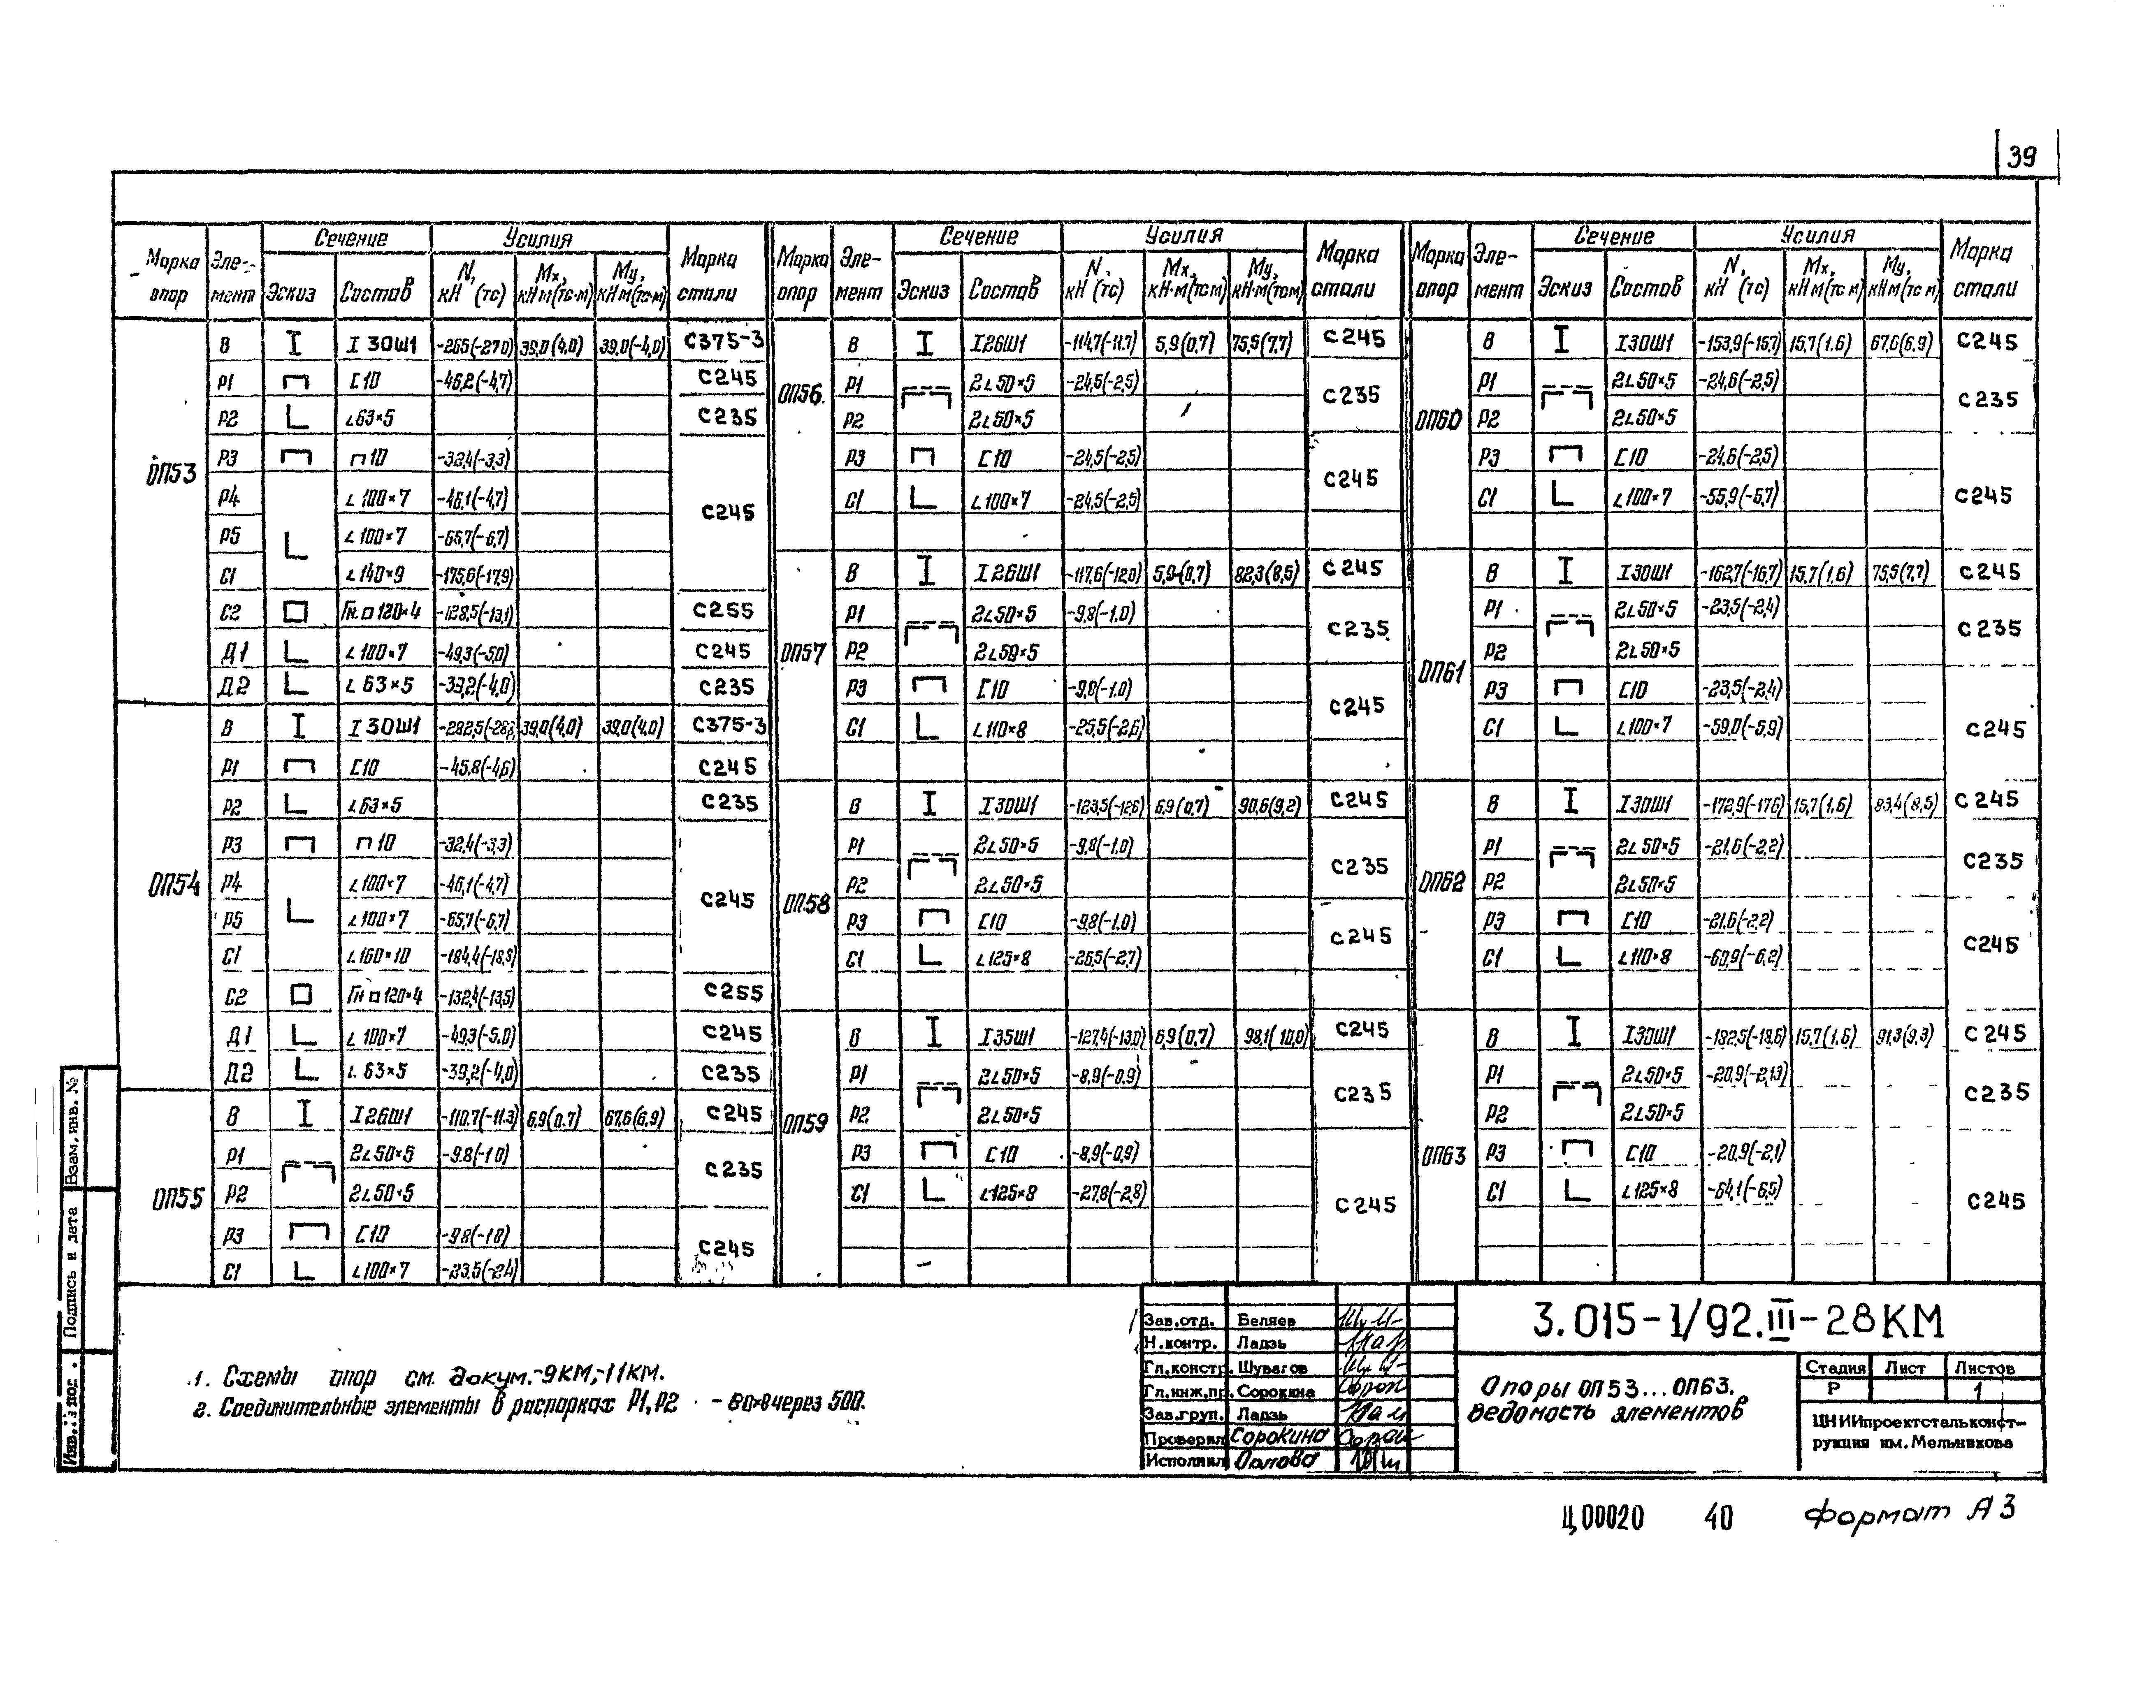 39
Марка опор Эле-мент Сечение Усилия Марка стали
Эскиз Состав N, кН (тс) Mx, кН м(тс·м) My, кН м(тс·м)
ОП53
В I 30Ш1 -265(-27,0) 39,0(4,0) 39,0(-4,0) С375-3
Р1 [10 -46,2(-4,7) С245
Р2 L63×5 С235
Р3 п10 -32,4(-3,3)
Р4 L100×7 -46,1(-4,7)
Р5 L100×7 -65,7(-6,7) С245
С1 L140×9 -175,6(-17,9)
С2 Гн.□120×4 -128,5(-13,1) С255
Д1 L100×7 -49,3(-5,0) С245
Д2 L63×5 -39,2(-4,0) С235
ОП54
В I 30Ш1 -282,5(-28,8) 39,0(4,0) 39,0(4,0) С375-3
Р1 [10 -45,8(-4,6) С245
Р2 L63×5 С235
Р3 п10 -32,4(-3,3)
Р4 L100×7 -46,1(-4,7)
Р5 L100×7 -65,7(-6,7) С245
С1 L160×10 -184,4(-18,8)
С2 Гн□120×4 -132,4(-13,5) С255
Д1 L100×7 -49,3(-5,0) С245
Д2 L63×5 -39,2(-4,0) С235
ОП55
В I26Ш1 -110.7(-11.3) 6,9(0.7) 67,6(6,9) С245
Р1 2L50×5 -9.8(-1 0) С235
Р2 2L50×5
Р3 [10 -9.8(-1 0) С245
С1 L100×7 -23,5(-2.4)
Марка опор Эле-мент Сечение Усилия Марка стали
Эскиз Состав N, кН (тс) Mx, кН·м(тсм) My, кН·м(тсм)
ОП56
В I26Ш1 -114,7(-11.7) 5,9(0,7) 75,5(7,7) С245
Р1 2L50×5 -24,5(-2,5) С235
Р2 2L50×5
Р3 [10 -24,5(-2,5) С245
С1 L100×7 -24,5(-2,5)
ОП57
В I26Ш1 -117,6(-12.0) 5,9(0,7) 82,3(8,5) С245
Р1 2L50×5 -9,8(-1.0) С235
Р2 2L50×5
Р3 [10 -9,8(-1.0) С245
С1 L110×8 -25,5(-2,6)
ОП58
В I30Ш1 -123,5(-12,6) 6,9(0,7) 90,6(9,2) С245
Р1 2L50×5 -9,8(-1.0) С235
Р2 2L50×5
Р3 [10 -9,8(-1.0) С245
С1 L125×8 -26,5(-2,7)
ОП59
В I35Ш1 -127,4(-13,0) 6,9(0,7) 98,1(10,0) С245
Р1 2L50×5 -8,9(-0,9) С235
Р2 2L50×5
Р3 [10 -8,9(-0,9) С245
С1 L125×8 -27,8(-2,8)
Марка опор Эле-мент Сечение Усилия Марка стали
Эскиз Состав N, кН (тс) Mx, кН м(тс м) My, кН м(тс м)
ОП60
В I30Ш1 -153,9(-15,7) 15,7(1.6) 67,6(6,9) С245
Р1 2L50×5 -24,6(-2,5) С235
Р2 2L50×5
Р3 [10 -24,6(-2,5) С245
С1 L100×7 -55,9(-5,7)
ОП61
В I30Ш1 -162,7(-16,7) 15,7(1,6) 75,5(7,7) С245
Р1 2L50×5 -23,5(-2,4) С235
Р2 2L50×5
Р3 [10 -23,5(-2,4) С245
С1 L100×7 -59,0(-5,9)
ОП62
В I30Ш1 -172,9(-17,6) 15,7(1,6) 83,4(8,5) С245
Р1 2L50×5 -21,6(-2,2) С235
Р2 2L50×5
Р3 [10 -21,6(-2,2) С245
С1 L110×8 -60,9(-6,2)
ОП63
В I30Ш1 -182,5(-18,6) 15,7(1.6) 91,3(9,3) С245
Р1 2L50×5 -20,9(-2,13) С235
Р2 2L50×5
Р3 [10 -20,9(-2,1) С245
С1 L125×8 -64,1(-6,5)
1. Схемы опор см. докум.-9КМ,-11КМ.
2. Соединительные элементы в распорках Р1,Р2 - 80×8 через 500.
Взам. инв. №
Подпись и дата
Инв. № подл.
Зав.отд. Беляев
Н.контр. Ладзь
Гл.констр. Шувагов
Гл.инж.пр. Сорокина
Зав.груп. Ладзь
Проверял Сорокина
Исполнил Орлова
3.015-1/92.III-28КМ
Опоры ОП53...ОП63.
Ведомость элементов
Стадия Лист Листов
Р 1
ЦНИИпроектстальконст-
рукция им.Мельникова
Ц00020 40 Формат А3